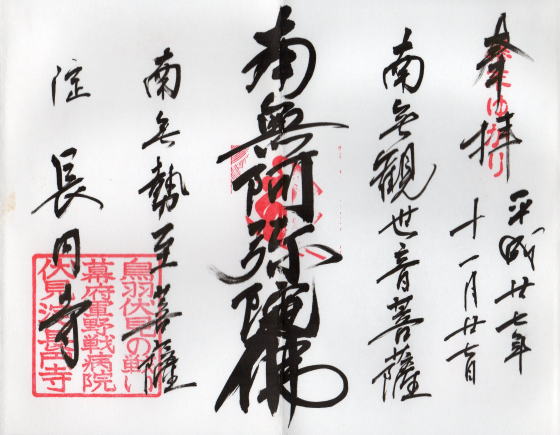 奉拝
平成廿七年
十一月廿一日
南無観世音菩薩
南無阿弥陀佛
南無勢至菩薩
淀
長円寺
鳥羽伏見の戦い
幕府軍野戦病院
伏見淀長円寺